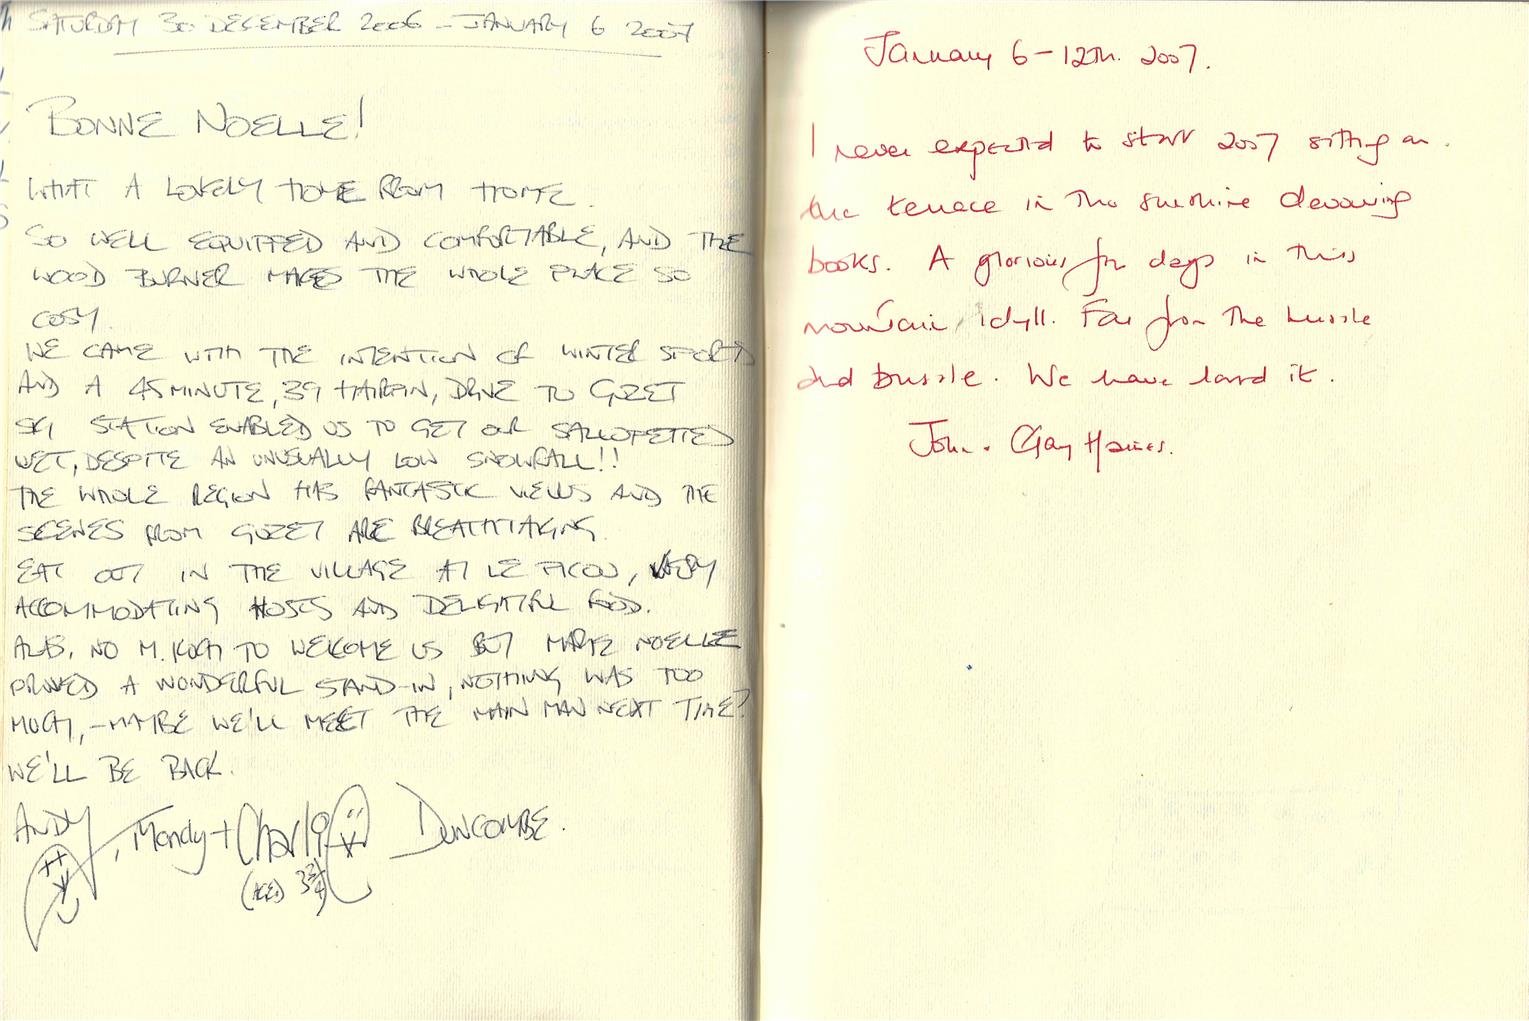 SATURDAY 30 DECEMBER 2006 – JANUARY 6 2007
BONNE NOELLE!
WHAT A LOVELY HOME FROM HOME.
SO WELL EQUIPPED AND COMFORTABLE, AND THE
WOOD BURNER MAKES THE WHOLE PLACE SO
COSY.
WE CAME WITH THE INTENTION OF WINTER SPORTS
AND A 45 MINUTE, 39 HAIRPIN, DRIVE TO GUZET
SKI STATION ENABLED US TO GET OUR SALLOPETTES
WET, DESPITE AN UNUSUALLY LOW SNOWFALL!!
THE WHOLE REGION HAS FANTASTIC VIEWS AND THE
SCENES FROM GUZET ARE BREATHTAKING.
EAT OUT IN THE VILLAGE AT LE PICOU, VERY
ACCOMMODATING HOSTS AND DELIGHTFUL FOOD.
ALAS, NO M. KOCH TO WELCOME US BUT MARIE NOELLE
PROVED A WONDERFUL STAND-IN, NOTHING WAS TOO
MUCH, – MAYBE WE'LL MEET THE MAIN MAN NEXT TIME?
WE'LL BE BACK.
ANDY, Mandy + Charlie DUNCOMBE.
(AGED 3 3/4)
January 6 – 12th. 2007.
I never expected to start 2007 sitting on
the terrace in the sunshine devouring
books. A glorious few days in this
mountain idyll. Far from the hussle
and bussle. We have loved it.
John + Gay Haines.